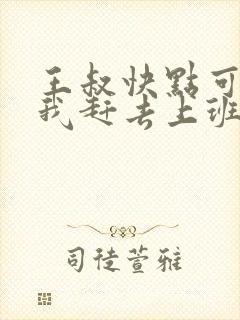 王叔快點可
我赶去上班
司徒萱雅